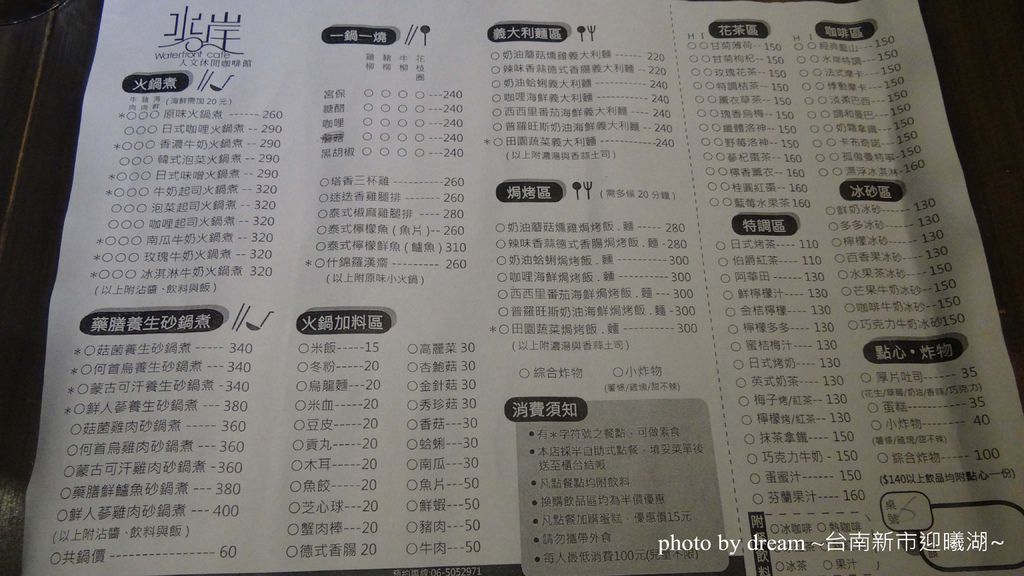 水岸
Waterfront cafe
人文休閒咖啡館
火鍋煮
牛肉 豬肉 海鮮 (海鮮需加20元)
*○○○ 原味火鍋煮 ------ 260
○○○ 日式咖哩火鍋煮 -- 290
*○○○ 香濃牛奶火鍋煮 -- 290
○○○ 韓式泡菜火鍋煮 -- 290
*○○○ 日式味噌火鍋煮 --- 290
*○○○ 牛奶起司火鍋煮 -- 320
○○○ 泡菜起司火鍋煮 -- 320
○○○ 咖哩起司火鍋煮 -- 320
*○○○ 南瓜牛奶火鍋煮 -- 320
*○○○ 玫瑰牛奶火鍋煮 -- 320
*○○○ 冰淇淋牛奶火鍋煮 320
(以上附沾醬、飲料與飯)
藥膳養生砂鍋煮
*○菇菌養生砂鍋煮 ----- 340
*○何首烏養生砂鍋煮 --- 340
*○蒙古可汗養生砂鍋煮 -340
*○鮮人蔘養生砂鍋煮 --- 380
○菇菌雞肉砂鍋煮 ----- 360
○何首烏雞肉砂鍋煮 --- 360
○蒙古可汗雞肉砂鍋煮 -360
○藥膳鮮鱸魚砂鍋煮 --- 380
○鮮人蔘雞肉砂鍋煮 --- 400
(以上附沾醬、飲料與飯)
○共鍋價 ------------- 60
一鍋一燒
雞柳 豬柳 牛柳 花枝圈
宮保 ○ ○ ○ ○ ---240
糖醋 ○ ○ ○ ○ ---240
咖哩 ○ ○ ○ ○ ---240
蘑菇 ○ ○ ○ ○ ---240
黑胡椒 ○ ○ ○ ○ ---240
○塔香三杯雞 ----------260
○迷迭香雞腿排 --------260
○泰式椒麻雞腿排 ----- 280
○泰式檸檬魚 (魚片)-- 260
○泰式檸檬鮮魚 (鱸魚) 310
*○什錦羅漢齋 --------- 260
(以上附原味小火鍋)
火鍋加料區
○米飯-----15
○冬粉-----20
○烏龍麵---20
○米血-----20
○豆皮-----20
○貢丸-----20
○木耳-----20
○魚餃-----20
○芝心球---20
○蟹肉棒---20
○德式香腸 20
○高麗菜 30
○杏鮑菇 30
○金針菇 30
○秀珍菇 30
○香菇---30
○蛤蜊---30
○南瓜---30
○魚片---50
○鮮蝦---50
○豬肉---50
○牛肉---50
預約專線:06-5052971
義大利麵區
○奶油蘑菇燻雞義大利麵 ------- 220
○辣味香蒜德式香腸義大利麵 -- 220
○奶油蛤蜊義大利麵 ----------- 240
○咖哩海鮮義大利麵 ----------- 240
○西西里番茄海鮮義大利麵 ---- 240
○普羅旺斯奶油海鮮義大利麵 -- 240
*○田園蔬菜義大利麵 -----------240
(以上附濃湯與香蒜土司)
焗烤區 (需多候 20 分鐘)
○奶油蘑菇燻雞焗烤飯.麵 ---- 280
○辣味香蒜德式香腸焗烤飯.麵 -280
○奶油蛤蜊焗烤飯.麵 -------- 300
○咖哩海鮮焗烤飯.麵 -------- 300
○西西里番茄海鮮焗烤飯.麵 --- 300
○普羅旺斯奶油海鮮焗烤飯.麵 - 300
*○田園蔬菜焗烤飯.麵 -------- 300
(以上附濃湯與香蒜土司)
○ 綜合炸物 ○小炸物
(薯條/雞塊/甜不辣)
消費須知
● 有＊字符號之餐點、可做素食
● 本店採半自助式點餐，填妥菜單後
送至櫃台結帳
● 凡點餐點均附飲料
● 換購飲品區均為半價優惠
● 凡點餐加購蛋糕，優惠價15元
● 請勿攜帶外食
● 每人最低消費100元(兒童不限)
花茶區
H I
○○甘菊薄荷-- 150
○○甘菊枸杞-- 150
○○玫瑰花茶-- 150
○○特調桔茶-- 150
○○薰衣草茶-- 150
○○瑰香烏梅-- 150
○○纖體洛神-- 150
○○野莓洛神-- 150
○○蔘杞棗茶-- 160
○○檸香薰衣-- 160
○○桂圓紅棗-- 160
○○藍莓水果茶 160
特調區
○ 日式烤茶---- 110
○ 伯爵紅茶---- 110
○ 阿華田------ 130
○ 鮮檸檬汁---- 130
○ 金桔檸檬---- 130
○ 檸檬多多---- 130
○ 蜜桔梅汁---- 130
○ 日式烤奶---- 130
○ 英式奶茶---- 130
○ 梅子烤/紅茶-- 130
○ 檸檬烤/紅茶-- 130
○ 抹茶拿鐵---- 150
○ 巧克力牛奶 - 150
○ 蛋蜜汁------ 150
○ 芬蘭果汁---- 160
咖啡區
H I
○○經典藍山-- 150
○○水岸特調-- 150
○○法式摩卡-- 150
○○悸動摩卡-- 150
○○淡柔巴西-- 150
○○調和曼巴-- 150
○○奶霜拿鐵-- 150
○○卡布奇諾-- 150
○○孤傲曼特寧 150
○○漂浮冰淇淋 160
冰砂區
○鮮奶冰砂---- 130
○多多冰砂---- 130
○檸檬冰砂---- 130
○百香果冰砂-- 130
○水果茶冰砂-- 130
○芒果牛奶冰砂--150
○咖啡牛奶冰砂--150
○巧克力牛奶冰砂150
點心・炸物
○ 厚片吐司------ 35
(花生/草莓/奶油/香蒜/巧克力)
○ 蛋糕---------- 35
○ 小炸物-------- 40
(薯條/雞塊/甜不辣)
○ 綜合炸物----- 100
($140以上飲品均附點心一份)
桌號
附
飲料
○冰咖啡 ○熱咖啡
○冰茶 ○果汁
photo by dream ~台南新市迎曦湖~